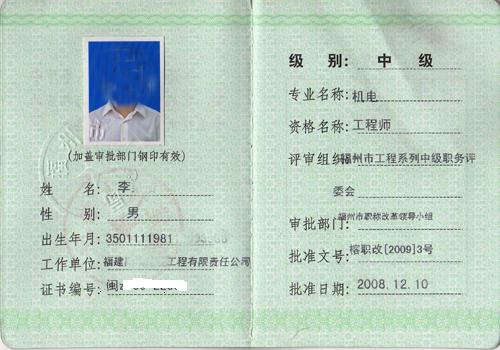 (加盖审批部门钢印有效)
姓 名: 李
性 别: 男
出生年月: 3501111981
工作单位: 福建 工程有限责任公司
证书编号: 闽
级 别: 中 级
专业名称: 机电
资格名称: 工程师
评审组织: 福州市工程系列中级职务评
委会
审批部门: 福州市职称改革领导小组
批准文号: 榕职改[2009]3号
批准日期: 2008.12.10